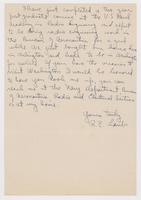 I have just completed a two year
post graduate course at the U.S. Naval
Academy in Radio Engineering and expect
to be doing radio engineering work in
the Bureau of Aeronautics for a year
while. We just bought our home here
in Arlington and hope to be in Arlington
for awhile. If you have the occasion to
visit Washington I would be honored
to have you look me up, you can
reach me at the Navy Department Bureau
of Aeronautics Radio and Electrical Section
or at my home.
Yours truly